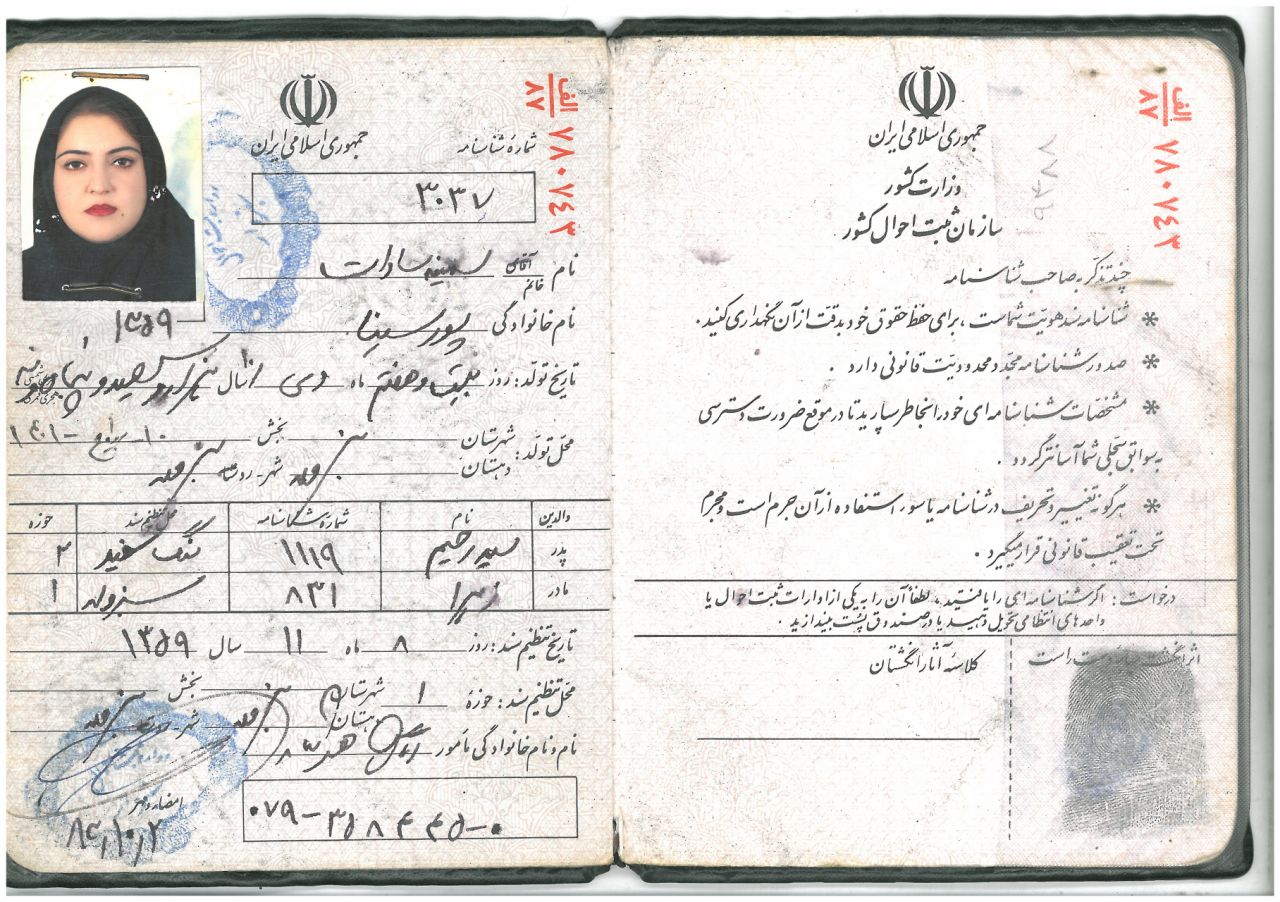 الف
۸۷ ۷۸۰۷۴۳
جمهوری اسلامی ایران
وزارت کشور
سازمان ثبت احوال کشور
چند تذکر به صاحب شناسنامه
* شناسنامه سند هویت شماست ، برای حفظ حقوق خود بدقت از آن نگهداری کنید .
* صدور شناسنامه مجدد محدودیت قانونی دارد .
* مشخصات شناسنامه ای خود را بخاطر بسپارید تا در موقع ضرورت دسترسی
به سوابق سجلی شما آسانتر گردد .
* هرگونه تغییر و تحریف در شناسنامه یا سوء استفاده از آن جرم است و مجرم
تحت تعقیب قانونی قرار میگیرد .
درخواست : اگر شناسنامه ای را یافتید ، لطفاً آن را به یکی از ادارات ثبت احوال یا
واحدهای انتظامی تحویل دهید یا در صندوق پست بیندازید .
اثر انگشت دست راست
کلاسه آثار انگشتان
الف
۸۷ ۷۸۰۷۴۳
جمهوری اسلامی ایران
شمارهٔ شناسنامه
۳۰۳۷
نام آقای خانم سمینه سادات
۱۳۵۹
نام خانوادگی پورسینا
تاریخ تولد : روز بیست و هفتم ماه دی سال هزار و سیصد و پنجاه و
محل تولد : شهرستان سبزوار بخش ۱۰
دهستان شهر - روستا سبزوار
والدین نام شماره شناسنامه محل تنظیم سند حوزه
پدر سید رحیم ۱۱۱۹ سنگ سفید ۲
مادر زهرا ۸۳۱ سبزوار ۱
تاریخ تنظیم سند : روز ۸ ماه ۱۱ سال ۱۳۵۹
محل تنظیم سند : حوزه ۱ شهرستان سبزوار بخش
دهستان سبزوار شهر سبزوار
نام و نام خانوادگی مأمور
امضاء و مهر
۸۳/۱۰/۲
۰۷۹-۳۵۸۴۴۵-۰